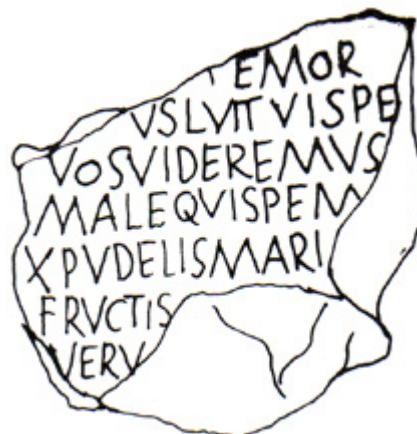 EMOR
VSLVTTVISPE
VOSVIDEREMVS
MALEQVISPEM
XPVDELISMARI
FRVCTIS
VERV